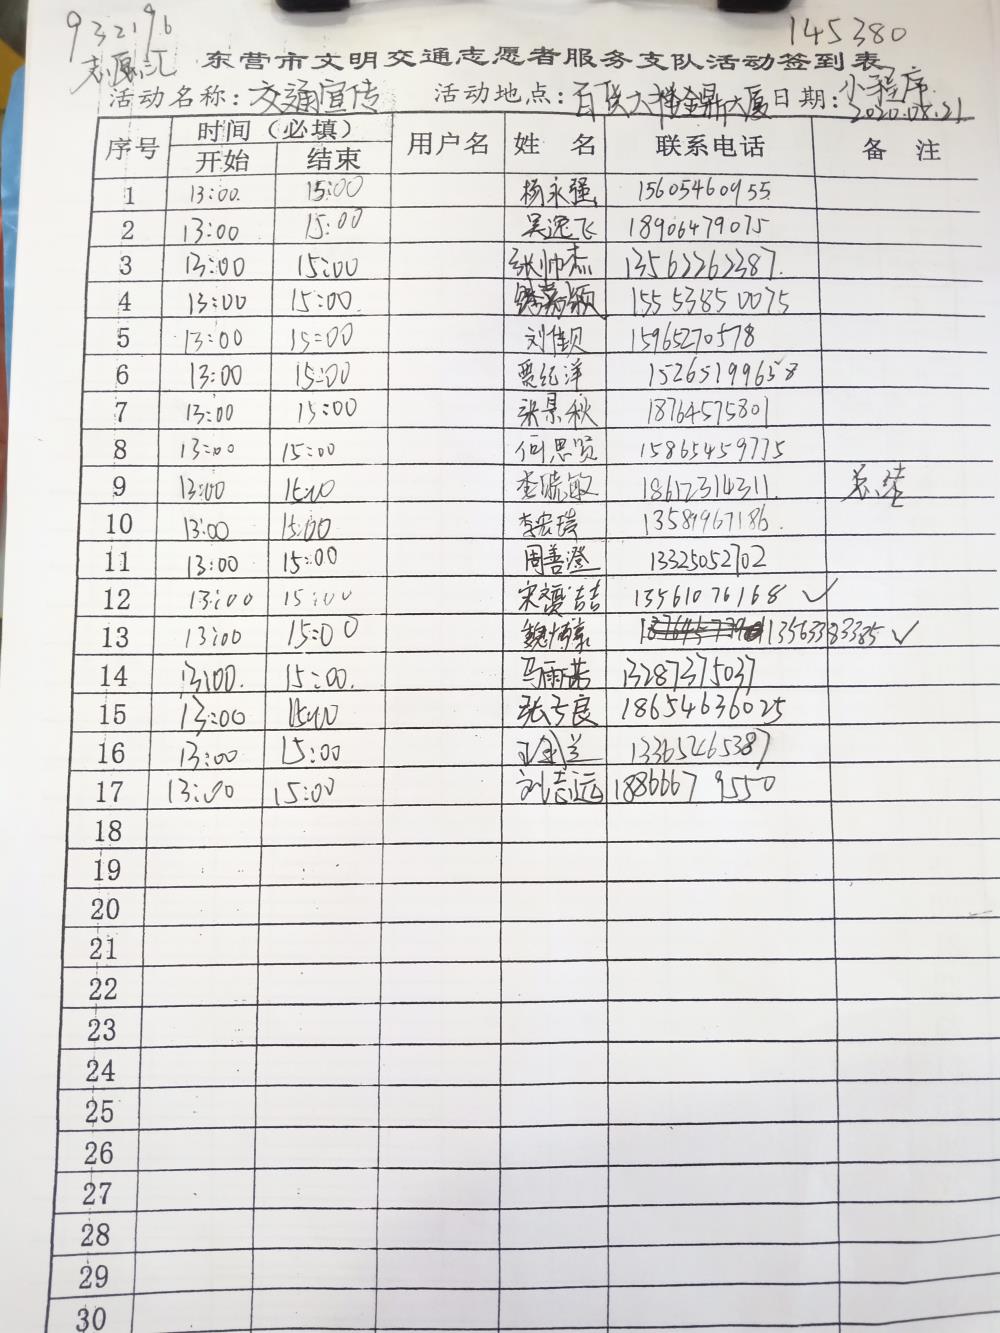 932196 145380
志愿汇 小程序
东营市文明交通志愿者服务支队活动签到表
活动名称：交通宣传 活动地点：百货大楼金鼎大厦 日期：2020.08.21
序号 时间（必填） 用户名 姓 名 联系电话 备 注
开始 结束
1 13:00 15:00 杨永强 15605460955
2 13:00 15:00 吴逸飞 18906479075
3 13:00 15:00 张帅杰 13562262387
4 13:00 15:00 15553850075
5 13:00 15:00 刘佳贝 15965270578
6 13:00 15:00 贾纪洋 15265199658
7 13:00 15:00 张景秋 18764575801
8 13:00 15:00 何思贤 15865459775
9 13:00 15:00 李晓敏 18612314311 总结
10 13:00 15:00 李宏琦 13589967186
11 13:00 15:00 周善澄 13325052702
12 13:00 15:00 13561076168 ✓
13 13:00 15:00 13563383385 ✓
14 13:00 15:00 马雨诺 13287375037
15 13:00 15:00 18654636025
16 13:00 15:00 13365465387
17 13:00 15:00 刘志远 18866679550
18
19
20
21
22
23
24
25
26
27
28
29
30